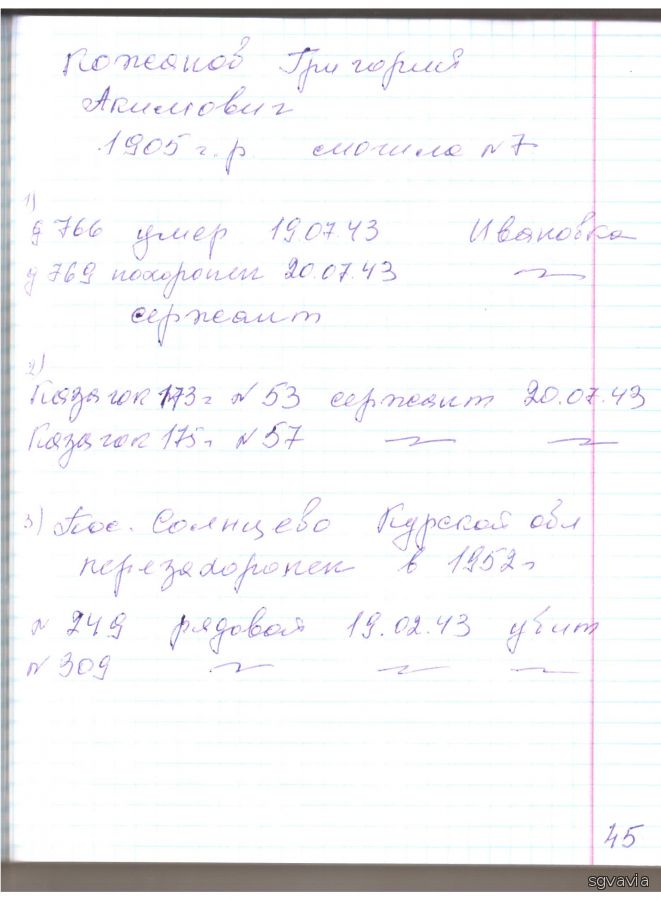 Кожанов Григорий
Акимович
1905 г.р. могила №7
1)
д 766 умер 19.07.43 Ивановка
д 769 похоронен 20.07.43 〃
сержант
2)
Казачок 173г №53 сержант 20.07.43
Казачок 175г №57 〃 〃
3) Пос. Солнцево Курской обл
перезахоронен в 1952г
№ 249 рядовой 19.02.43 убит
№ 309 〃 〃 〃
45
sgvavia